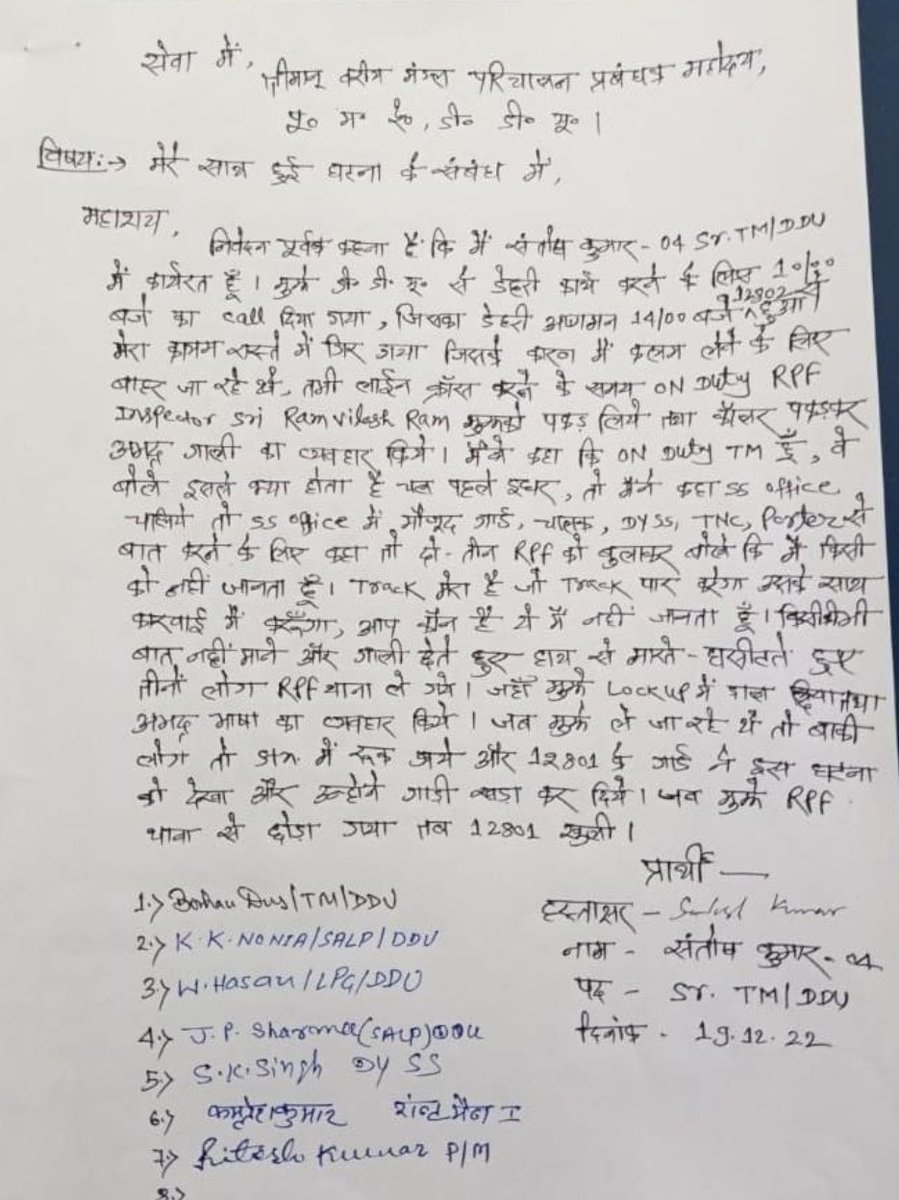 सेवा में,
श्रीमान् वरीय मंडल परिचालन प्रबंधक महोदय,
पू० म० रे०, डी० डी० यू० ।
विषय:→ मेरे साथ हुई घटना के संबंध में,
महाशय,
निवेदन पूर्वक कहना है कि मैं संतोष कुमार - 04 Sr. TM/DDU
में कार्यरत हूँ । मुझे डी० डी० यू० से डेहरी कार्य करने के लिए 10/00
बजे का call दिया गया, जिसका डेहरी आगमन 14/00 बजे 12802 से हुआ ।
मेरा कलम रास्ते में गिर गया जिसके कारण मैं कलम लेने के लिए
बाहर जा रहे थे, तभी लाईन क्रॉस करने के समय ON Duty RPF
Inspector Sri Ram vilash Ram मुझको पकड़ लिये तथा कॉलर पकड़कर
अभद्र गाली का व्यवहार किये । मैंने कहा कि ON Duty TM हूँ, वे
बोले इससे क्या होता है चल पहले इधर, तो मैंने कहा SS office
चलिये तो SS office में मौजूद गार्ड, चालक, DYSS, TNC, Porter से
बात करने के लिए कहा तो दो - तीन RPF को बुलाकर बोले कि मैं किसी
को नहीं जानता हूँ । Track मेरा है जो Track पार करेगा उसके साथ
करवाई मैं करूँगा, आप कौन है ये मैं नहीं जानता हूँ । किसी की भी
बात नहीं माने और गाली देते हुए हाथ से मारते - घसीटते हुए
तीनों लोग RPF थाना ले गये । जहाँ मुझे Lockup में डाल दिया तथा
अभद्र भाषा का व्यवहार किये । जब मुझे ले जा रहे थे तो बाकी
लोग तो में रूक गये और 12801 के गार्ड ने इस घटना
को देखा और उन्होंने गाडी खडा कर दिये । जब मुझे RPF
थाना से छोड़ा गया तब 12801 खुली ।
प्रार्थी —
1.> Das/TM/DDU
हस्ताक्षर - Kumar
2.> K.K. NONIA/SALP/DDU
नाम - संतोष कुमार - 04
3.> W. Hasan/LPG/DDU
पद - Sr. TM/DDU
4.> J.P. Sharma (SALP) DDU
दिनांक - 19.12.22
5.> S.K. Singh DY SS
6.> कुमार शंटमैन I
7.> Ritesh Kumar P/M
8.>